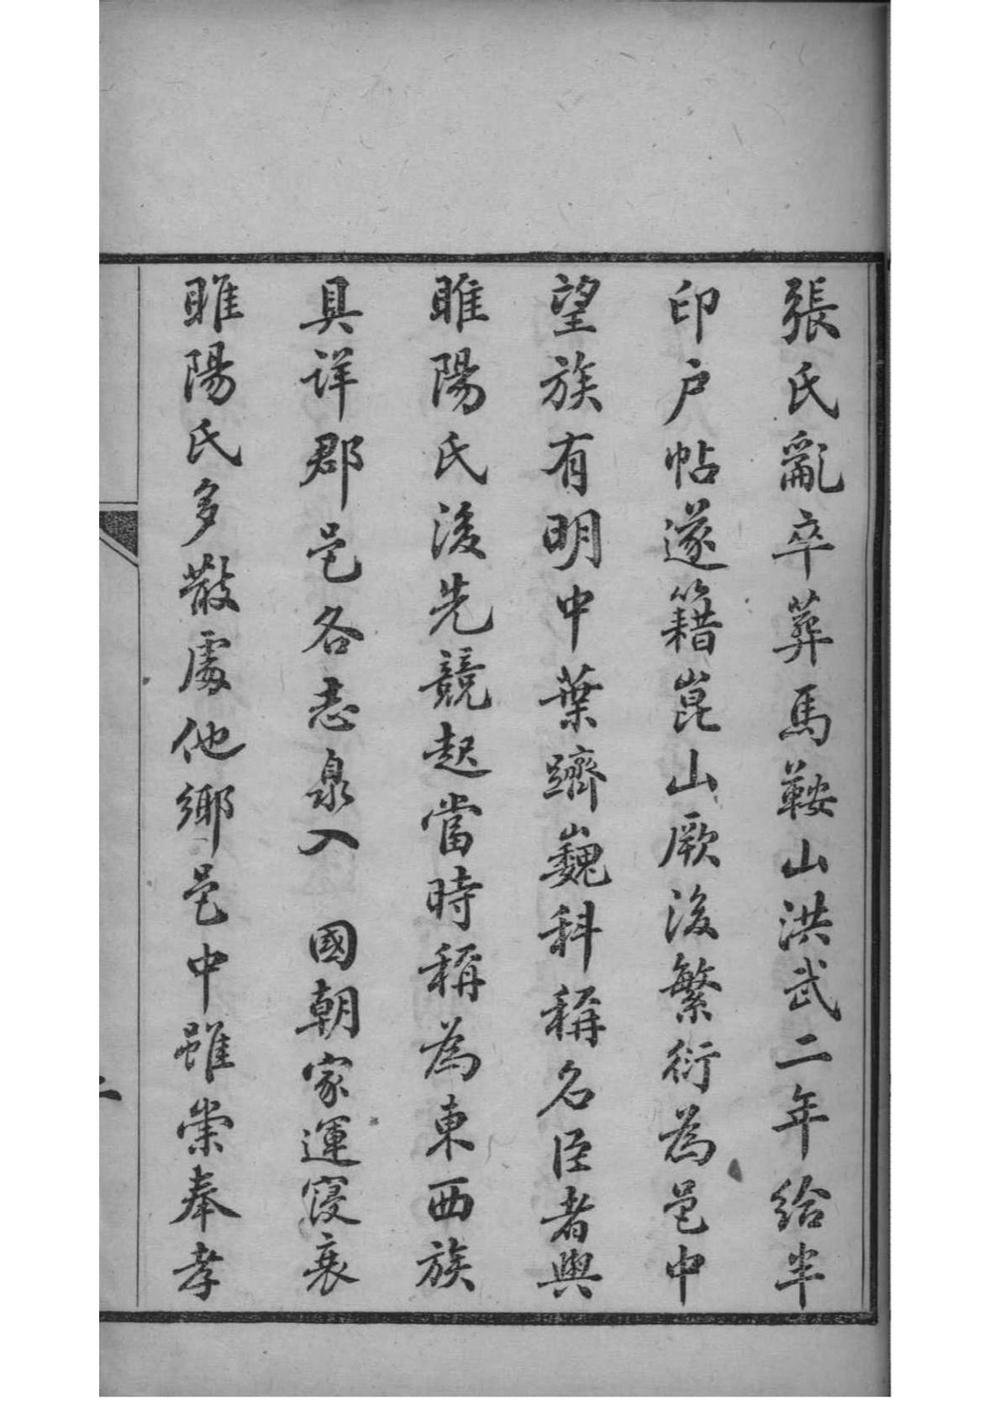 張氏亂卒葬馬鞍山洪武二年給半
印戶帖遂籍崑山厥後繁衍為邑中
望族有明中葉躋巍科稱名臣者與
睢陽氏後先競起當時稱為東西族
具詳郡邑各志泉入　國朝家運寖衰
睢陽氏多散處他鄉邑中雖崇奉孝
二